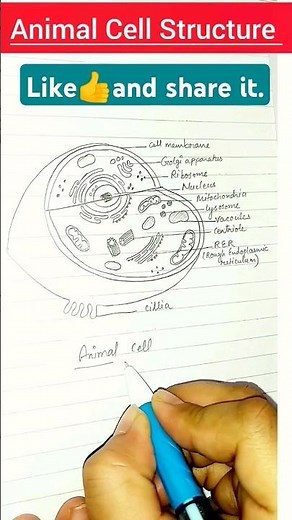 Animal Cell Structure
Like👍and share it.
cell membrane
Golgi apparatus
Ribosome
Nucleus
Mitochondria
lysosome
vacoules
Centriole
RER
(Rough Endoplasmic
Reticulum)
cillia
Animal Cell